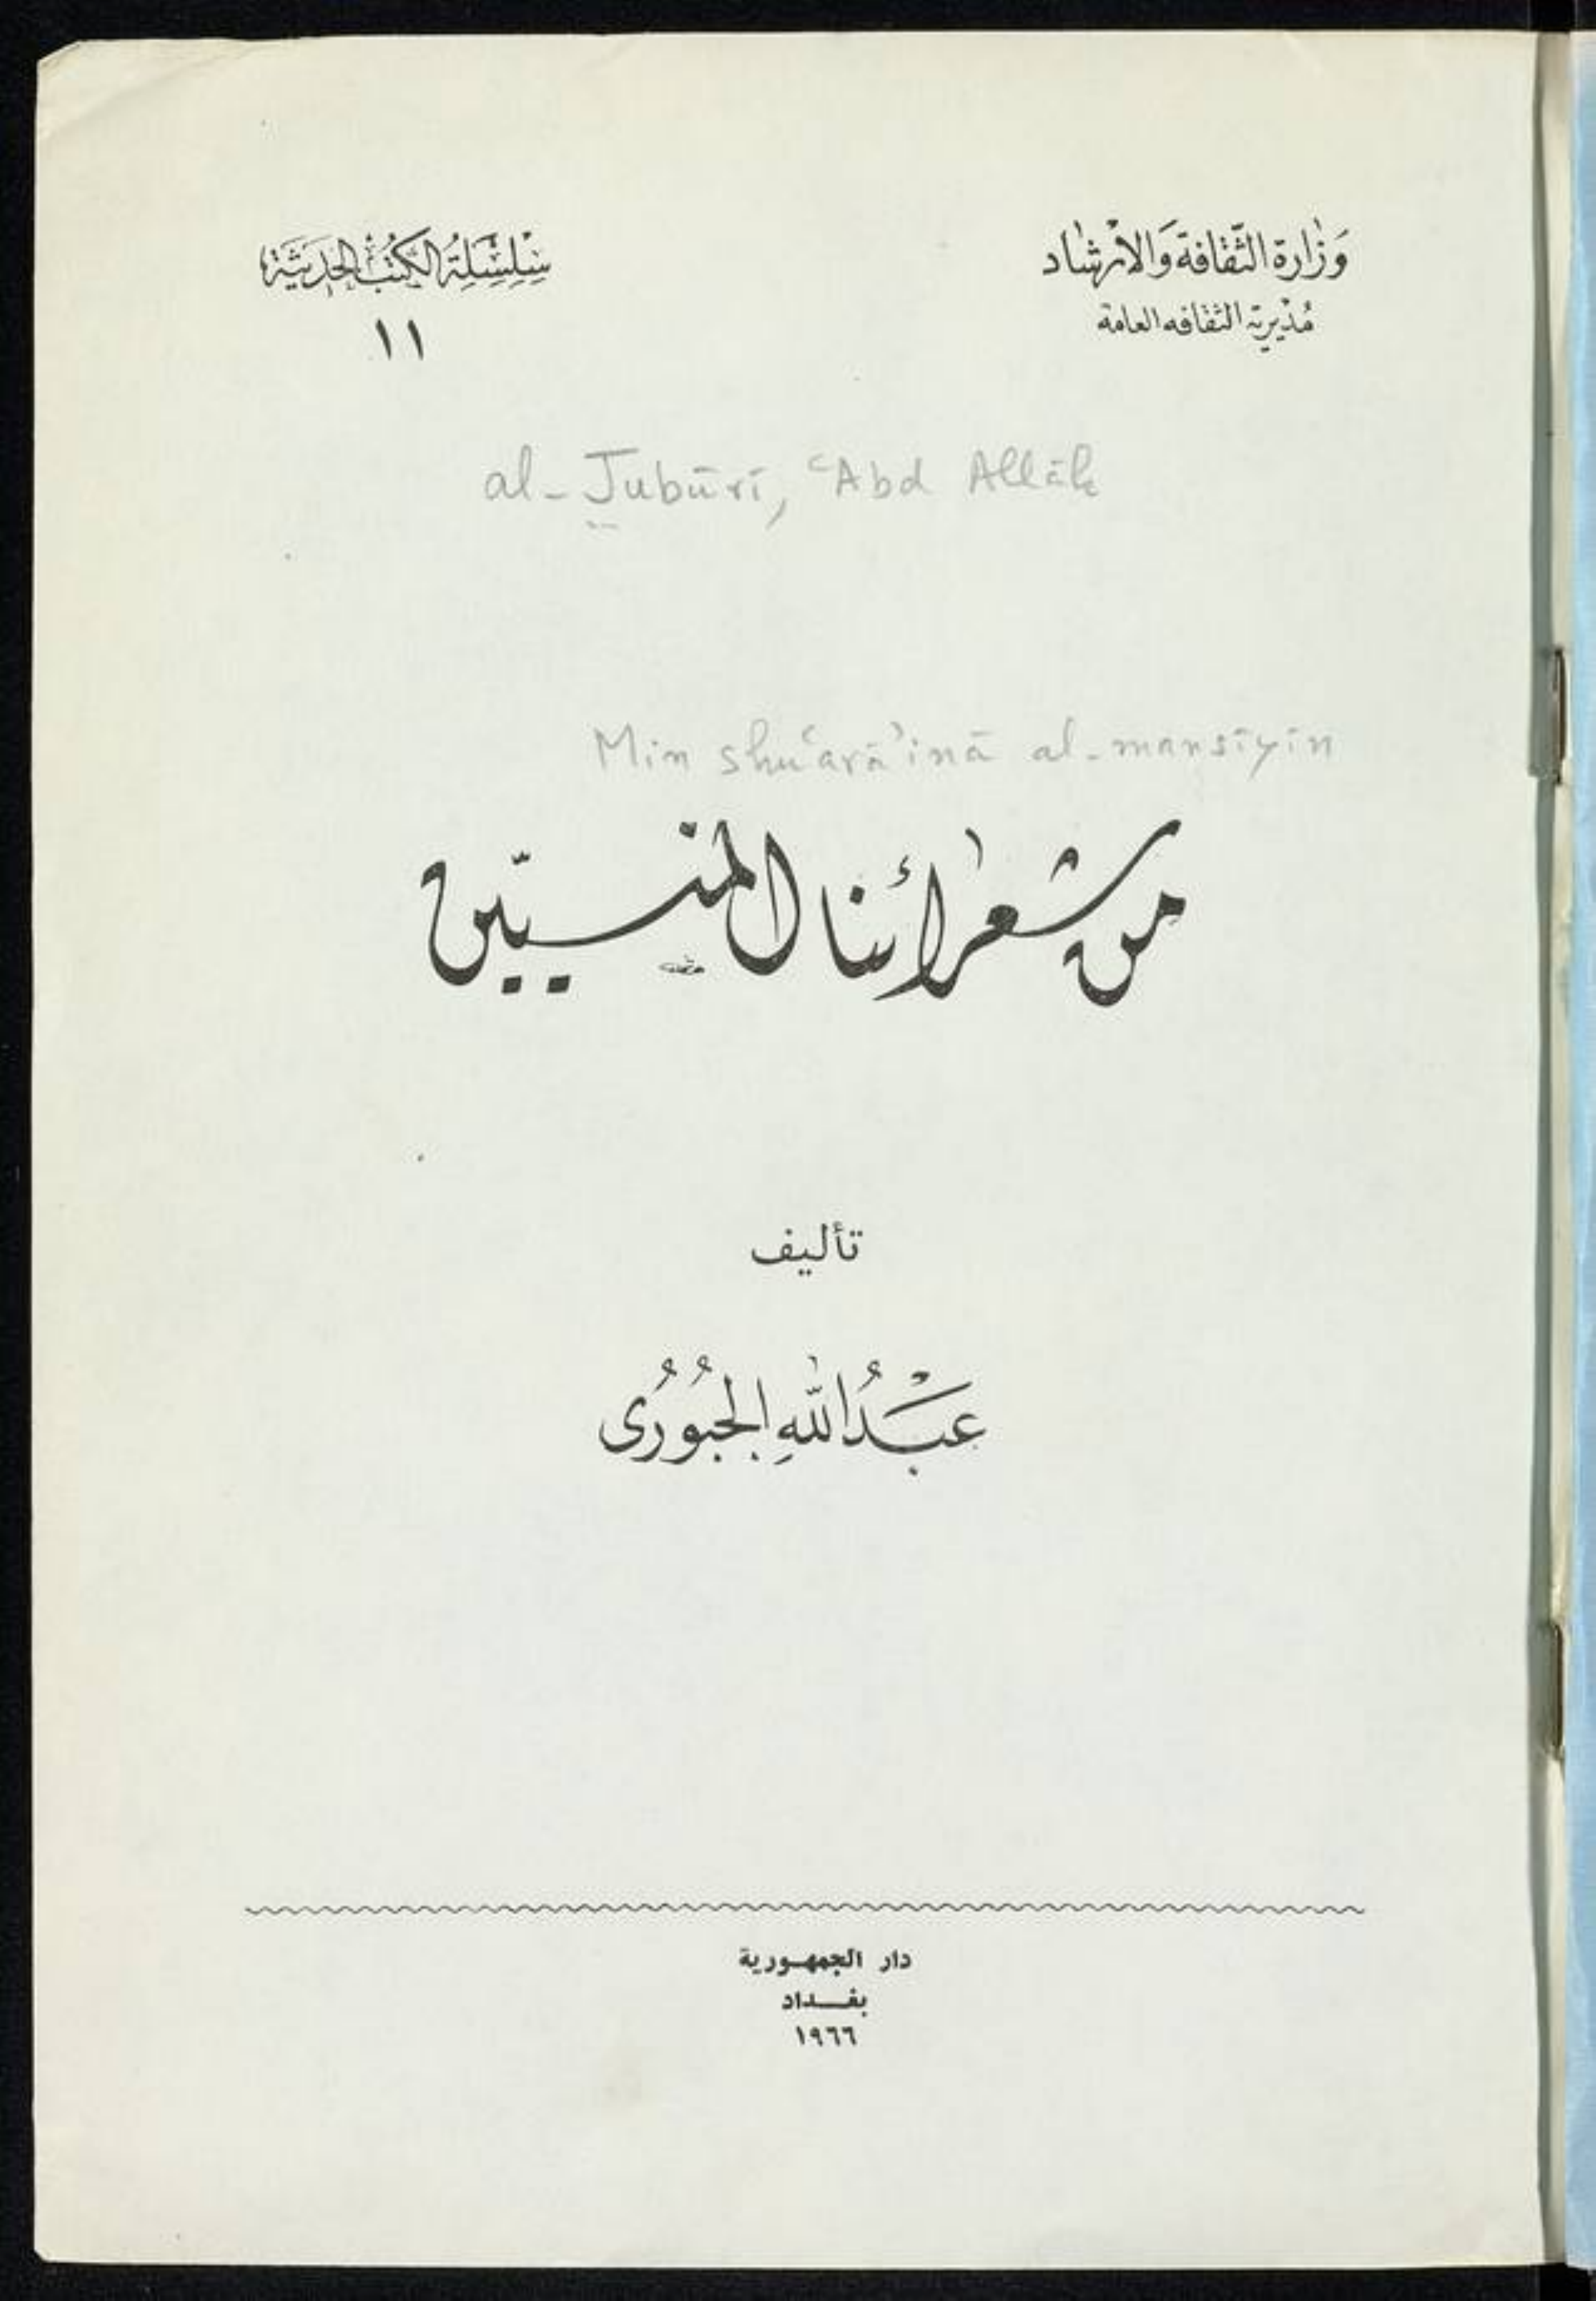 وَزَارة الثَّقافة وَالإرْشاد
مُديْرية الثقافه العامة
سِلْسِلَةُ الكُتُبُ الحَديثَة
١١
al-Jubūrī, ʿAbd Allāh
Min shuʿarāʾinā al-mansīyīn
من شعرائنا المنسيّين
تأليف
عَبْدُ اللّهِ الجُبُورُى
دار الجمهورية
بغداد
١٩٦٦